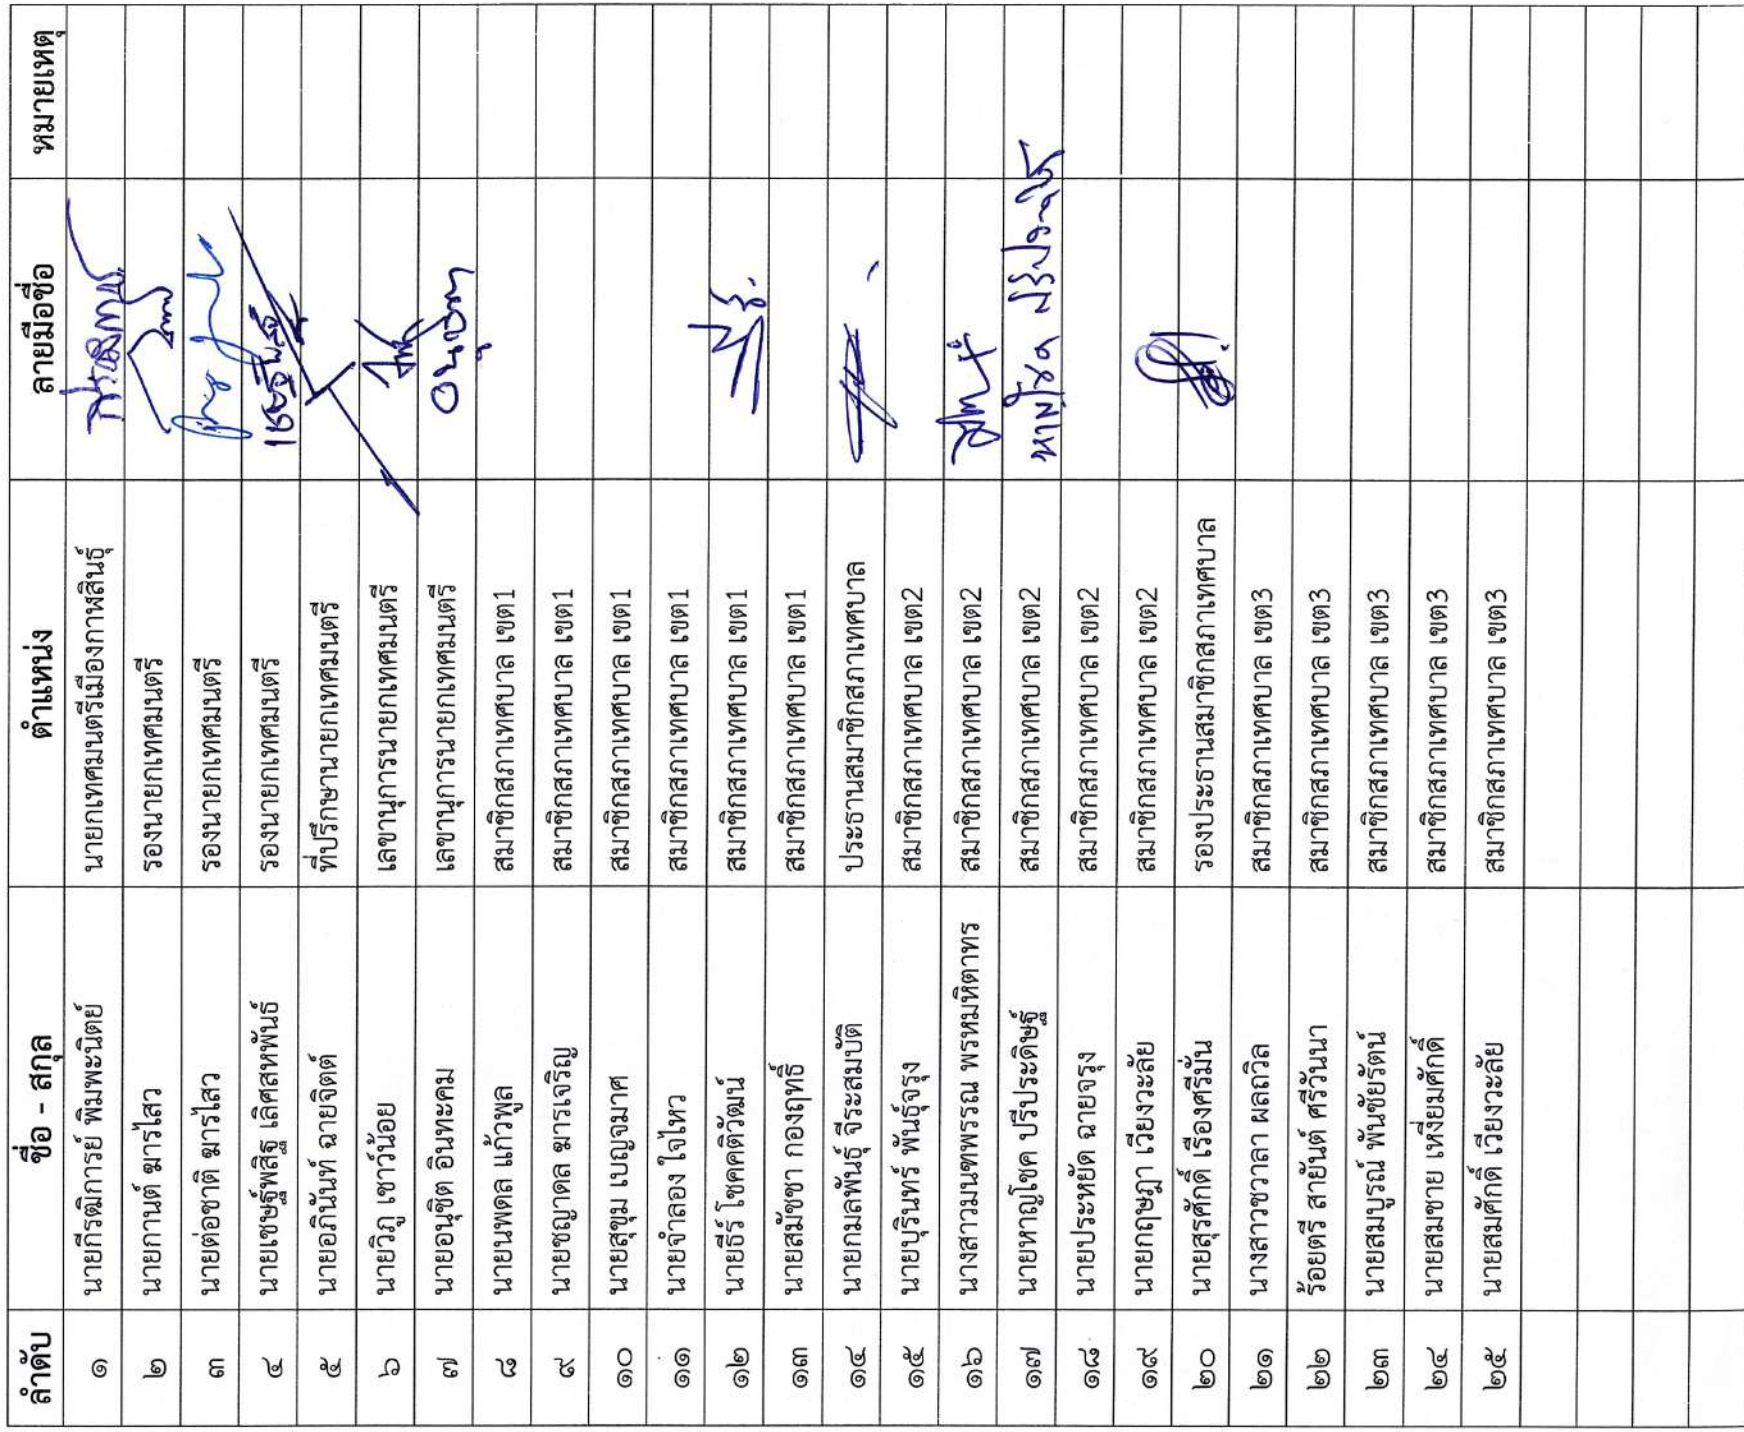 ลำดับ ชื่อ - สกุล ตำแหน่ง ลายมือชื่อ หมายเหตุ
๑ นายกีรฒิการย์ พิมพะนิตย์ นายกเทศมนตรีเมืองกาฬสินธุ์
๒ นายกานต์ ฆารไสว รองนายกเทศมนตรี
๓ นายต่อชาติ ฆารไสว รองนายกเทศมนตรี
๔ นายเชษฐ์พสิฐ เลิศสหพันธ์ รองนายกเทศมนตรี
๕ นายอภินันท์ ฉายจิตต์ ที่ปรึกษานายกเทศมนตรี
๖ นายวิภู เชาว์น้อย เลขานุการนายกเทศมนตรี
๗ นายอนุชิต อินทะคม เลขานุการนายกเทศมนตรี
๘ นายนพดล แก้วพูล สมาชิกสภาเทศบาล เขต1
๙ นายชญาดล ฆารเจริญ สมาชิกสภาเทศบาล เขต1
๑๐ นายสุขุม เบญจมาศ สมาชิกสภาเทศบาล เขต1
๑๑ นายจำลอง ใจไหว สมาชิกสภาเทศบาล เขต1
๑๒ นายธีร์ โชคคติวัฒน์ สมาชิกสภาเทศบาล เขต1
๑๓ นายสมัชชา กองฤทธิ์ สมาชิกสภาเทศบาล เขต1
๑๔ นายกมลพันธุ์ จีระสมบัติ ประธานสมาชิกสภาเทศบาล
๑๕ นายบุรินทร์ พันธุ์จรุง สมาชิกสภาเทศบาล เขต2
๑๖ นางสาวมนฑพรรณ พรหมมิตาทร สมาชิกสภาเทศบาล เขต2
๑๗ นายหาญโชค ปรีประดิษฐ์ สมาชิกสภาเทศบาล เขต2 หาญโชค ปรีประดิษฐ์
๑๘ นายประหยัด ฉายจรุง สมาชิกสภาเทศบาล เขต2
๑๙ นายกฤษฎา เวียงวะลัย สมาชิกสภาเทศบาล เขต2
๒๐ นายสุรศักดิ์ เรืองศรีมั่น รองประธานสมาชิกสภาเทศบาล
๒๑ นางสาวชวาลา ผลถวิล สมาชิกสภาเทศบาล เขต3
๒๒ ร้อยตรี สายันต์ ศรีวันนา สมาชิกสภาเทศบาล เขต3
๒๓ นายสมบูรณ์ พันชัยรัตน์ สมาชิกสภาเทศบาล เขต3
๒๔ นายสมชาย เหงี่ยมศักดิ์ สมาชิกสภาเทศบาล เขต3
๒๕ นายสมศักดิ์ เวียงวะลัย สมาชิกสภาเทศบาล เขต3